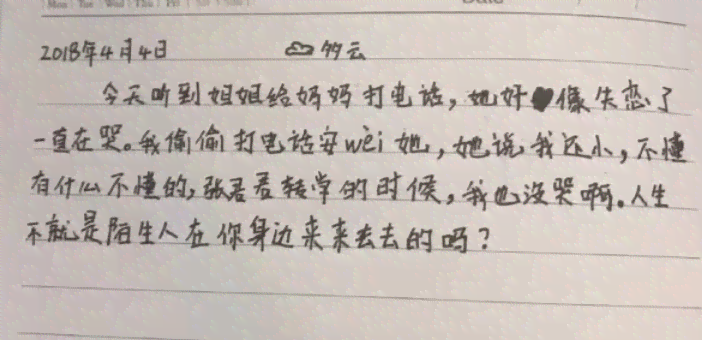 Mon Tue Wed Thu Fri Sat Sun
Date
2018年4月4日 多云
今天听到姐姐给妈妈打电话,她好像失恋了
一直在哭。我偷偷打电话安wèi她,她说我还小,不懂
有什么不懂的,张君君转学的时候,我也没哭啊。人生
不就是陌生人在你身边来来去去的吗?